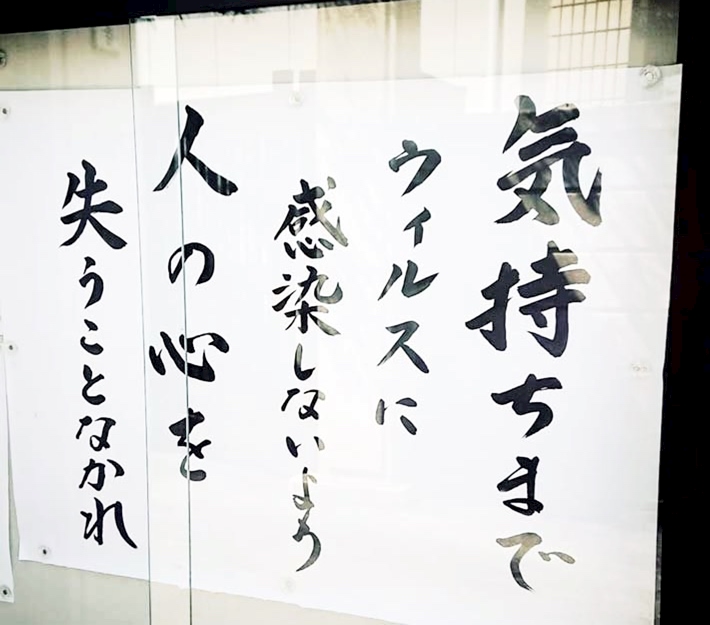 気持ちまで
ウィルスに
感染しないよう
人の心を
失うことなかれ